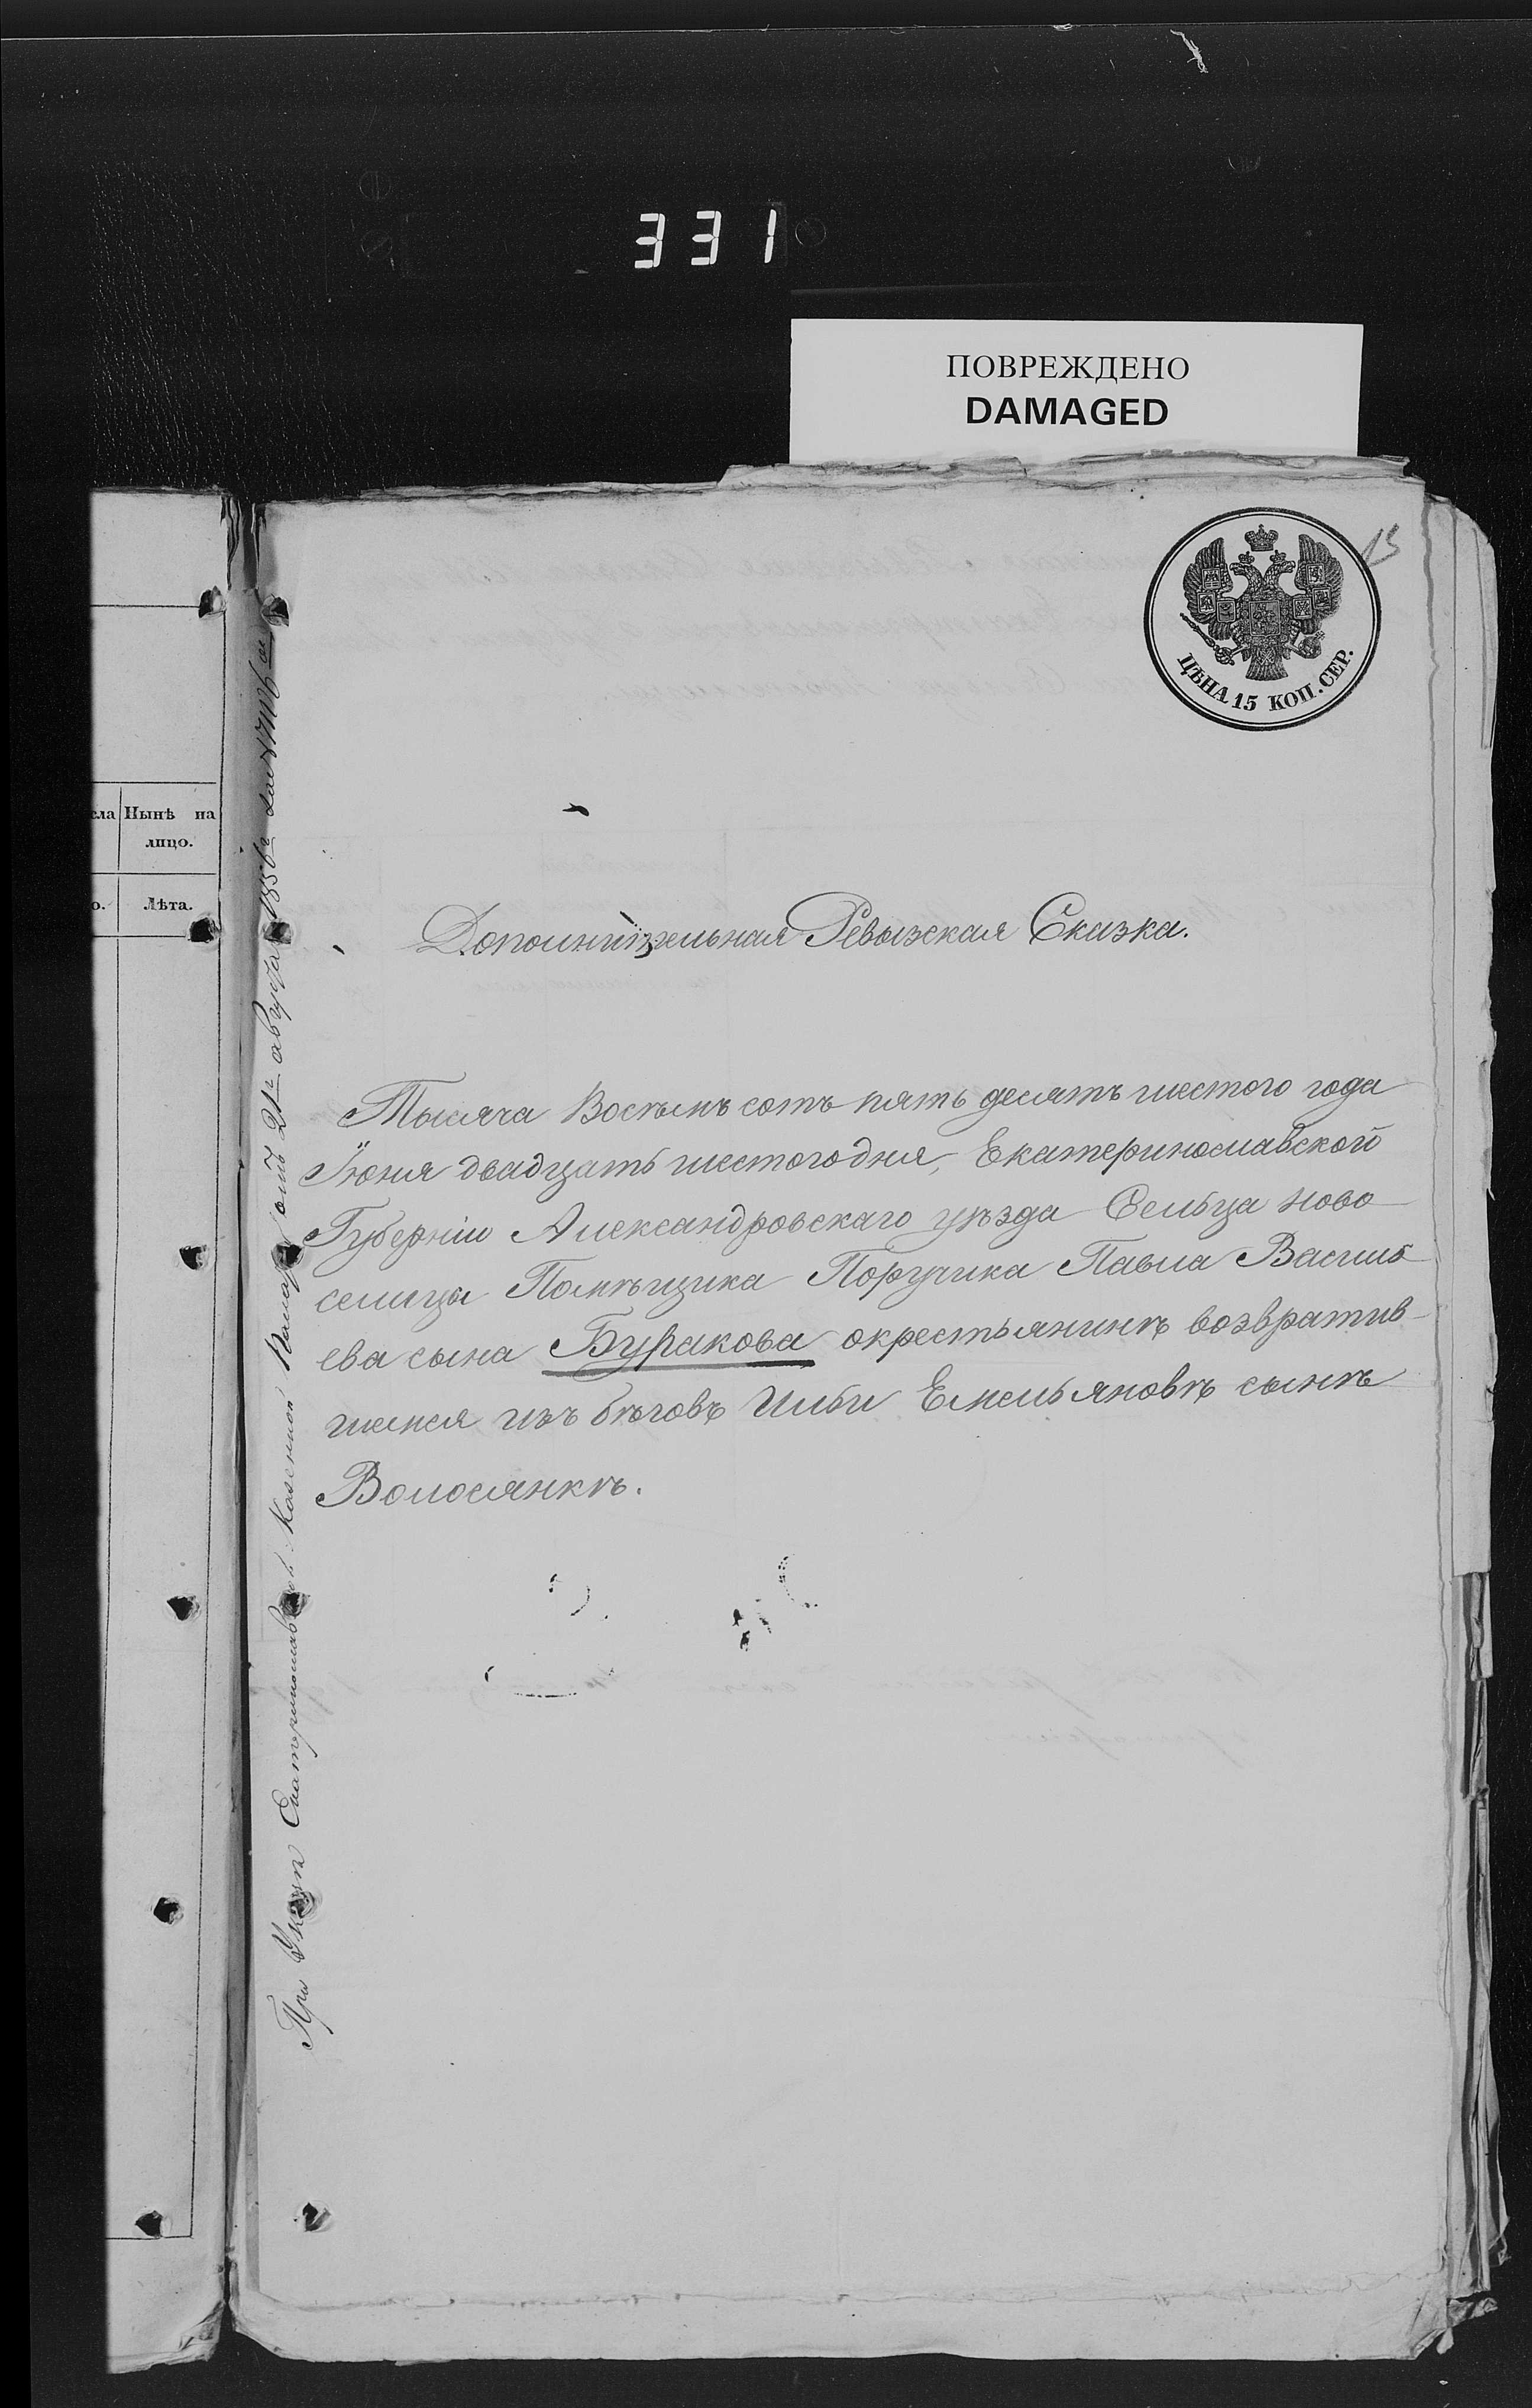 331
ПОВРЕЖДЕНО
DAMAGED
15
ЦѢНА 15 КОП. СЕР.
сла
Нынѣ на
лицо.
о.
Лѣта.
Дополнительная Ревызская Сказка.
Тысяча Восѣмъ сотъ пять десятъ шестого года
Іюня двадцать шестого дня, Екатеринославской
Губерніи Александровскаго уѣзда Сельца ново
селицы Помѣщика Поручика Павла Василь
ева сына Буракова окрестьянинѣ возвратив-
шемся изъ бѣговъ Ильи Емельяновѣ сынѣ
Волосянкѣ.
При Указѣ Екатеринославской Казенной Палаты отъ 21г августа 1856г за №